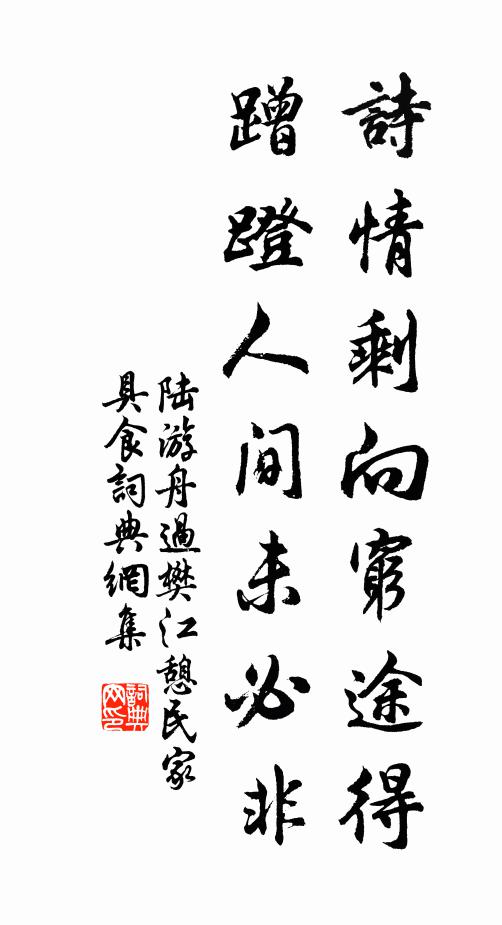 詩情剩向窮途得
蹭蹬人间未必非
陆游舟過樊江憩民家
具食詞典網集
詞典
网印